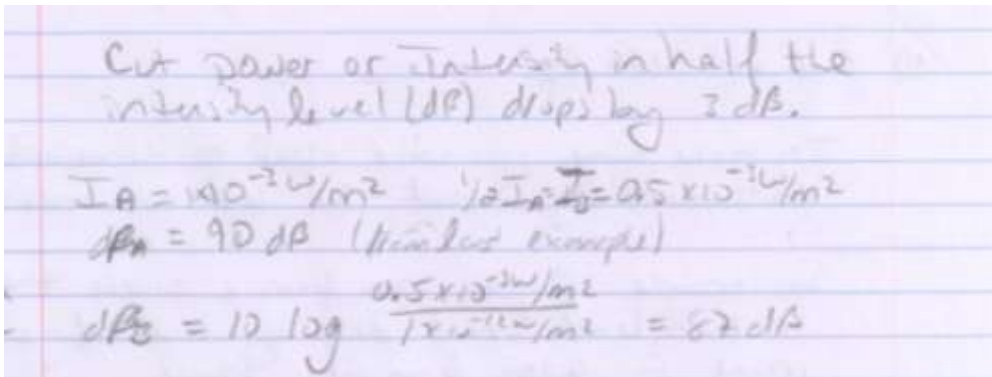 Cut power or Intensity in half the
intensity level (dB) drops by 3 dB.
I A = 1x10⁻³ w/m² 1/2 I_A = I_B = 0.5 x10⁻³ w/m²
dB_A = 90 dB (from last example)
dB_B = 10 log (0.5 x 10⁻³ w/m²)/(1 x 10⁻¹² w/m²) = 87 dB